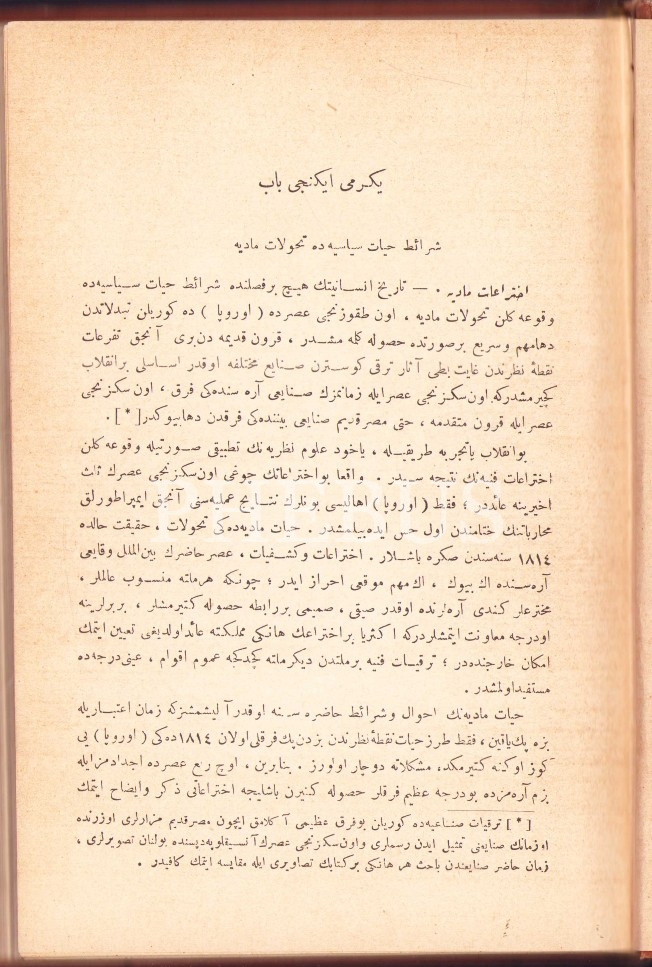 یکرمی ایکنجی باب
شرائط حیات سیاسیه‌ده تحولات مادیه
اختراعات مادیه . — تاریخ انسانیتك هیچ برفصلنده شرائط حیات سیاسیه‌ده
وقوعه کلن تحولات مادیه ، اون طقوزنجی عصرده ( اوروپا ) ده کوریلن تبدلاتدن
دهامهم وسریع برصورتده حصوله کلمه مشدر . قرون قدیمه دن‌بری آنجق تفرعات
نقطهٔ نظرندن غایت بطی آثار ترقی کوسترن صنایع مختلفه اوقدر اساسلی برانقلاب
کچیرمشدرکه اون سکزنجی عصرایله زمانمزك صنایعی آره سنده‌کی فرق ، اون سکزنجی
عصرایله قرون متقدمه ، حتی مصرقدیم صنایعی بیننده‌کی فرقدن دهابیوکدر [ * ] .
بوانقلاب یاتجربه طریقیله ، یاخود علوم نظریه‌نك تطبیقی صورتیله وقوعه کلن
اختراعات فنیه‌نك نتیجه سیدر . واقعا بواختراعاتك چوغی اون سکزنجی عصرك ثلث
اخیرینه عائددر ؛ فقط ( اوروپا ) اهالیسی بونلرك نتایج عملیه‌سنی آنجق ایمپراطورلق
محارباتنك ختامندن اول حس ایده‌بیلمشدر . حیات مادیه‌ده‌کی تحولات ، حقیقت حالده
۱۸۱٤ سنه‌سندن صکره باشلار . اختراعات وکشفیات ، عصرحاضرك بین‌الملل وقایعی
آره‌سنده اك بیوك ، اك‌مهم موقعی احراز ایدر ؛ چونکه هرملته منسوب عالملر ،
مخترعلر کندی آره‌لرنده اوقدر صیقی ، صمیمی بررابطه حصوله کتیرمشلر ، بربرلرینه
اودرجه معاونت ایتمشلردرکه اکثریا براختراعك هانکی مملکته عائداولدیغنی تعیین ایتمك
امکان خارجنده‌در ؛ ترقیات فنیه برملتدن دیکرملته کچه‌کچه عموم اقوام ، عینی‌درجه‌ده
مستفیداولمشدر .
حیات مادیه‌نك احوال وشرائط حاضره سنه اوقدر آلیشمشزکه زمان اعتباریله
بزه پك‌یاقین ، فقط طرزحیات نقطهٔ نظرندن بزدن‌پك فرقلی اولان ۱۸۱٤ده‌کی ( اوروپا ) یی
کوز اوکنه کتیرمکده مشکلاته دوچار اولورز . بنابرین ، اوچ ربع عصرده اجدادمزایله
بزم آره‌مزده بودرجه عظیم فرقلر حصوله کتیرن باشلیجه اختراعاتی ذکر وایضاح ایتمك
[ * ] ترقیات صناعیه‌ده کوریلن بوفرق عظیمی آکلامق ایچون مصرقدیم مزارلری اوزرنده
اوزمانك صنایعنی تمثیل ایدن رسملری واون سکزنجی عصرك آنسیقلوپه‌دیسنده بولنان تصویرلری ،
زمان حاضر صنایعندن باحث هر هانکی برکتابك تصاویری ایله مقایسه ایتمك کافیدر .